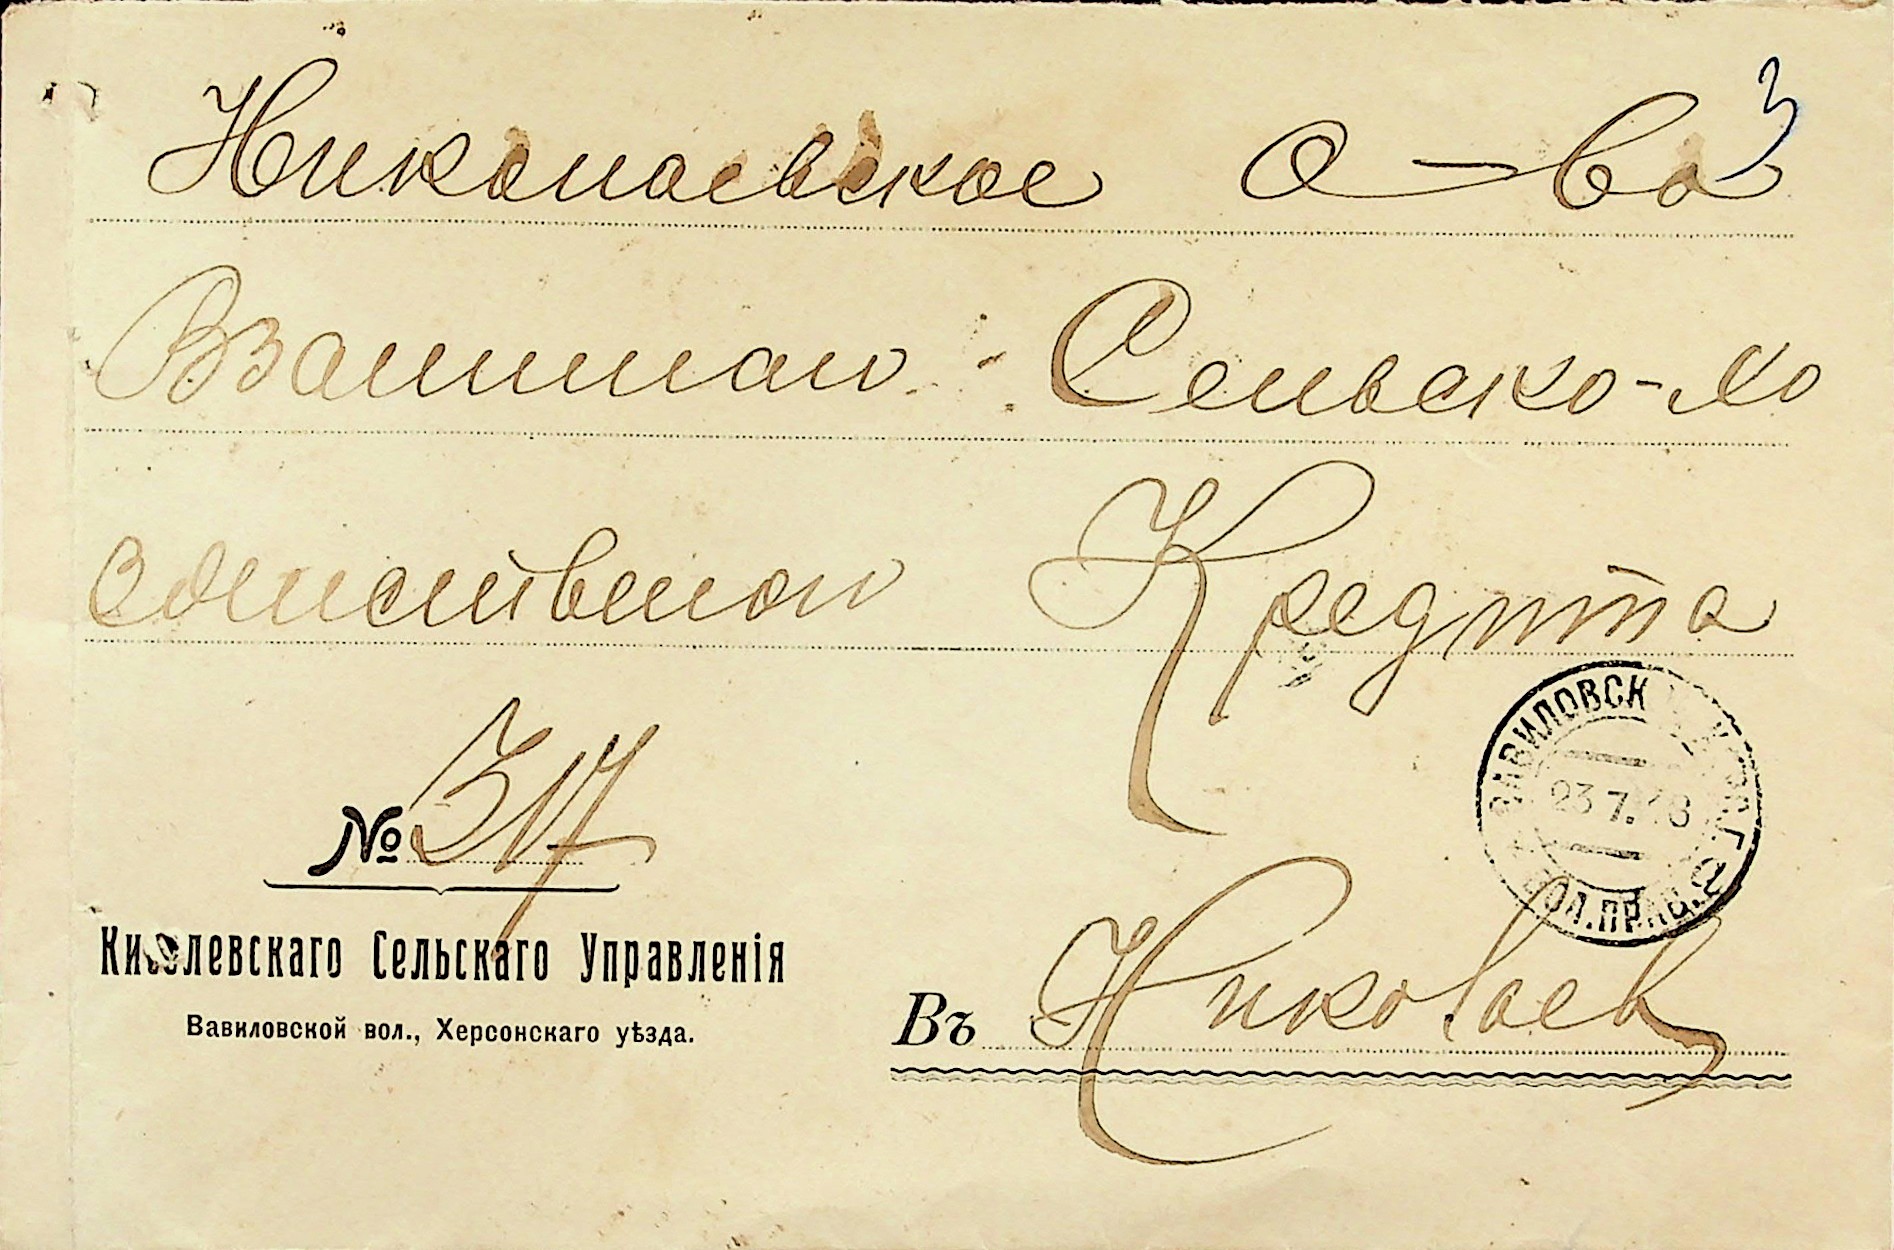 Николаевское о-во
Взаимнаго Сельско-хо
зяйственнаго Кредита
№ 317
Киселевскаго Сельскаго Управленія
Вавиловской вол., Херсонскаго уѣзда.
Въ Николаевъ
ВАВИЛОВСК
23 7.18
ВОЛ.ПРАВ.